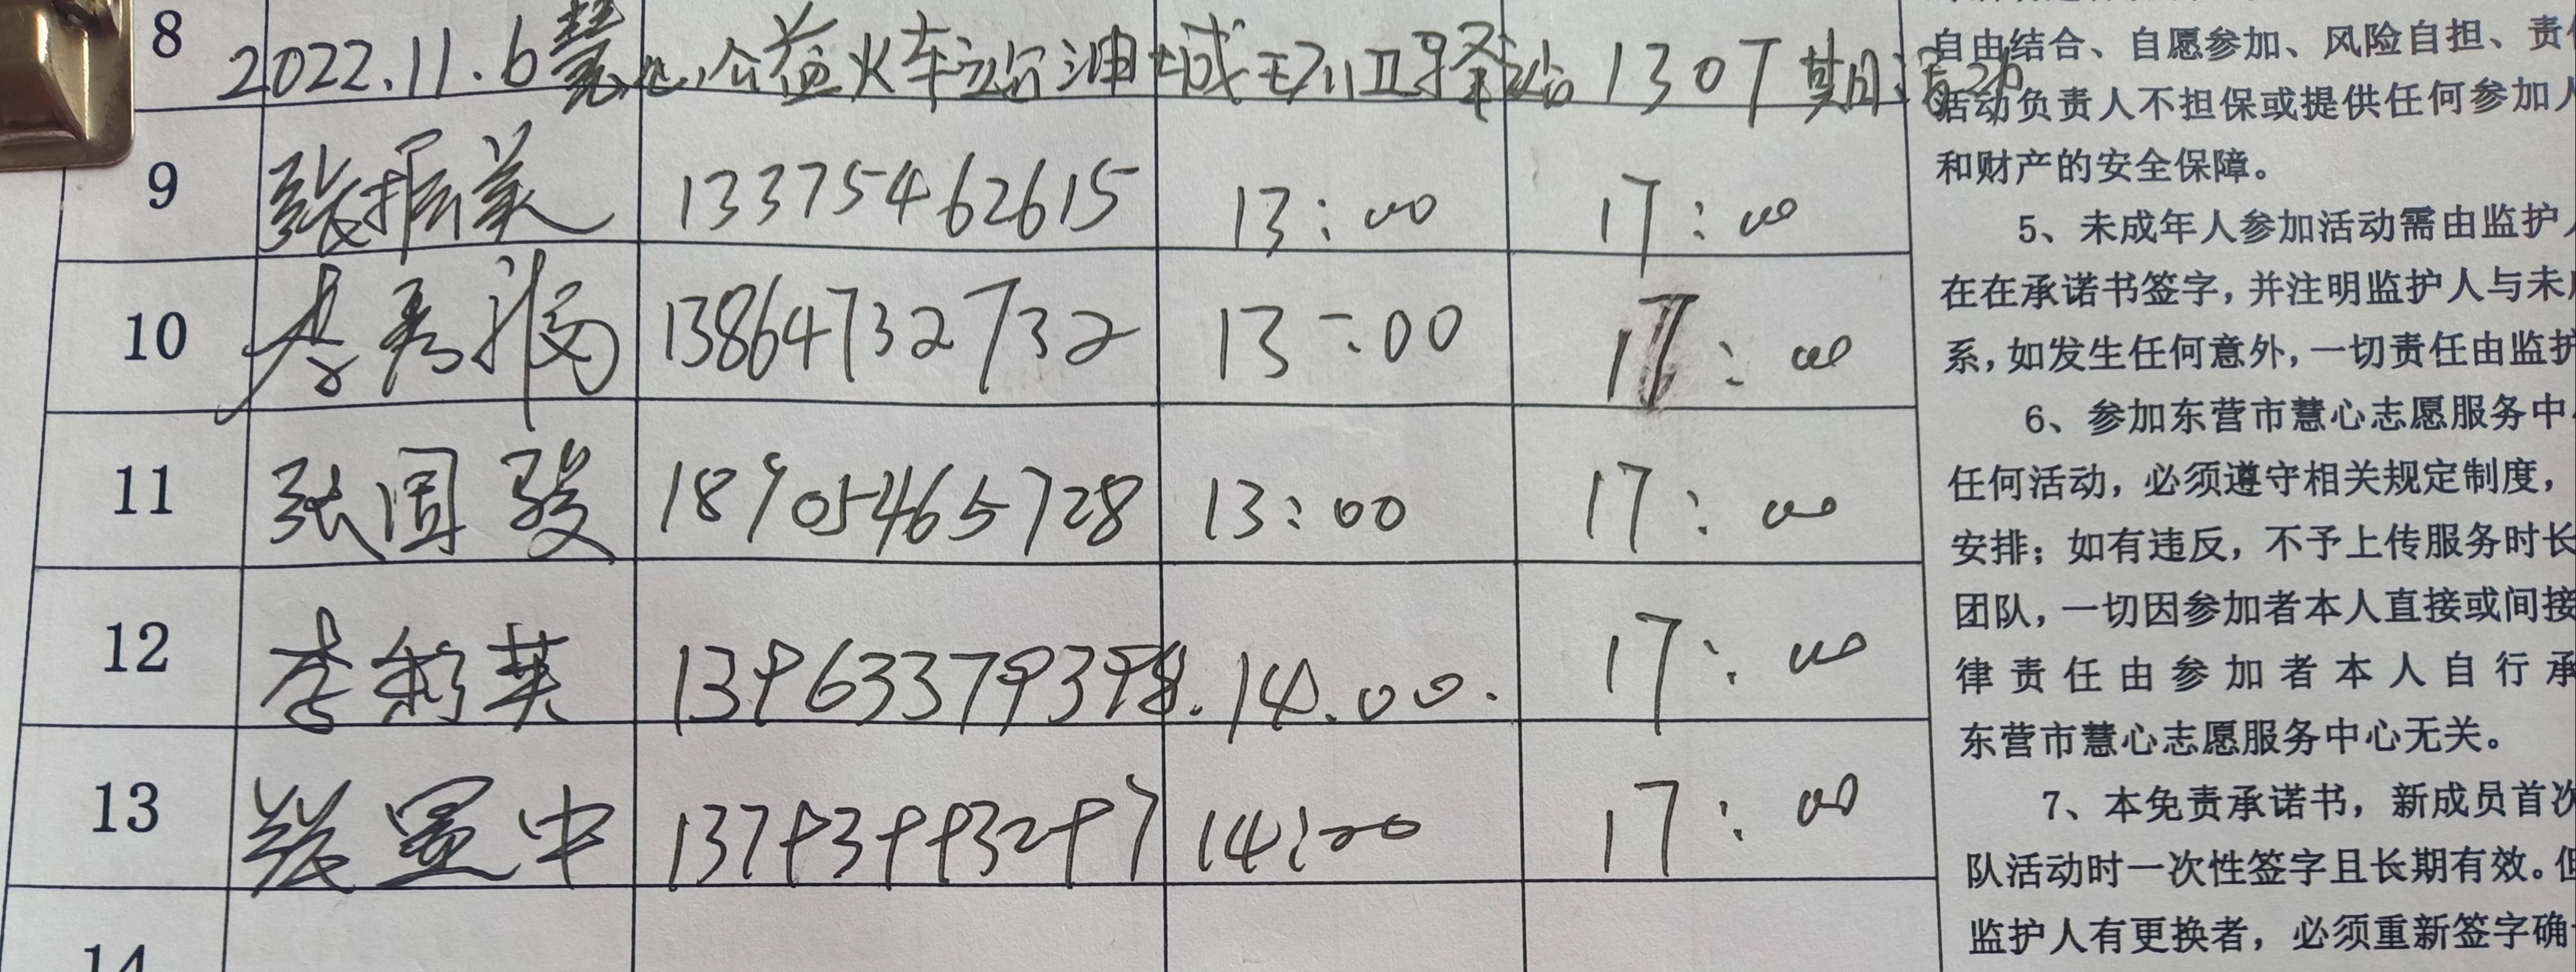 8
2022.11.6慧心公益火车站油城环卫驿站1307期活动
9 张振美 13375462615 13:00 17:00
10 李秀 13864732732 13:00 17:00
11 张国骏 18905465728 13:00 17:00
12 李莉英 1396337939 14.00. 17:00
13 张 中 13793993297 14:00 17:00
14
自由结合、自愿参加、风险自担、责
活动负责人不担保或提供任何参加人
和财产的安全保障。
5、未成年人参加活动需由监护人
在在承诺书签字，并注明监护人与未
系，如发生任何意外，一切责任由监护
6、参加东营市慧心志愿服务中
任何活动，必须遵守相关规定制度，
安排；如有违反，不予上传服务时长
团队，一切因参加者本人直接或间接
律责任由参加者本人自行承
东营市慧心志愿服务中心无关。
7、本免责承诺书，新成员首次
队活动时一次性签字且长期有效。但
监护人有更换者，必须重新签字确